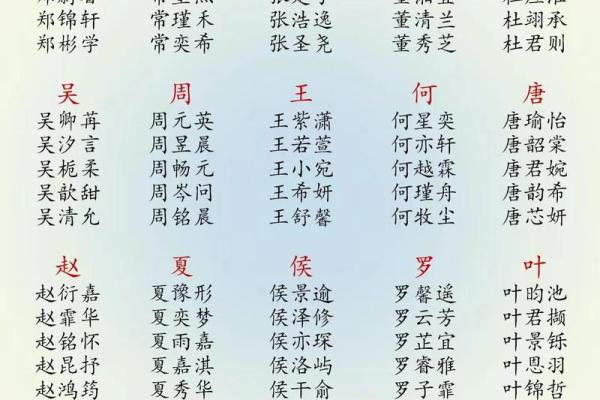 郑锦轩 常瑾禾 张浩逸 董清兰 杜翊承
郑彬学 常奕希 张圣尧 董秀芝 杜君则
吴 周 王 何 唐
吴卿苒 周元英 王紫潇 何星奕 唐瑜怡
吴汐言 周昱晨 王若萱 何亦轩 唐韶棠
吴栀柔 周畅元 王小宛 何越霖 唐君婉
吴歆甜 周岑问 王希妍 何瑾舟 唐韵希
吴清允 周铭晨 王舒馨 何牧尘 唐芯妍
赵 夏 侯 罗 叶
赵衍嘉 夏豫形 侯景逾 罗馨遥 叶昀池
赵霏华 夏奕梦 侯泽修 罗云芳 叶君撷
赵铭怀 夏雨嘉 侯亦琛 罗芷宜 叶景铄
赵昆抒 夏嘉淇 侯洛屿 罗睿雅 叶恩羽
赵鸿筠 夏秀华 侯干俞 罗子霏 叶锦哲